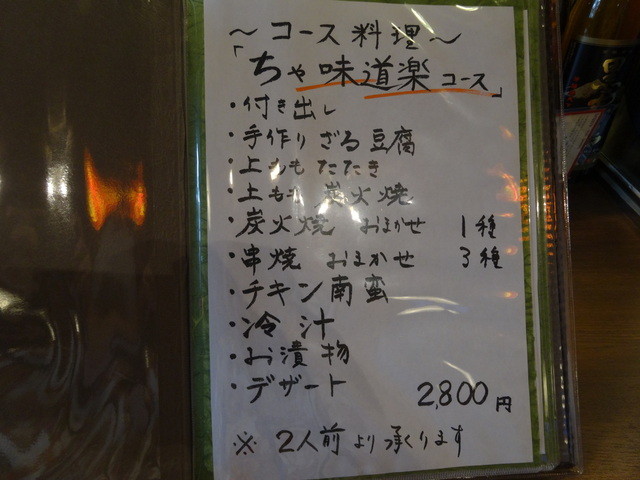 ～コース料理～
「ちゃ味道楽コース」
・付き出し
・手作りざる豆腐
・上ももたたき
・上もも炭火焼
・炭火焼 おまかせ 1種
・串焼 おまかせ 3種
・チキン南蛮
・冷汁
・お漬物
・デザート
2,800円
※ 2人前より承くります